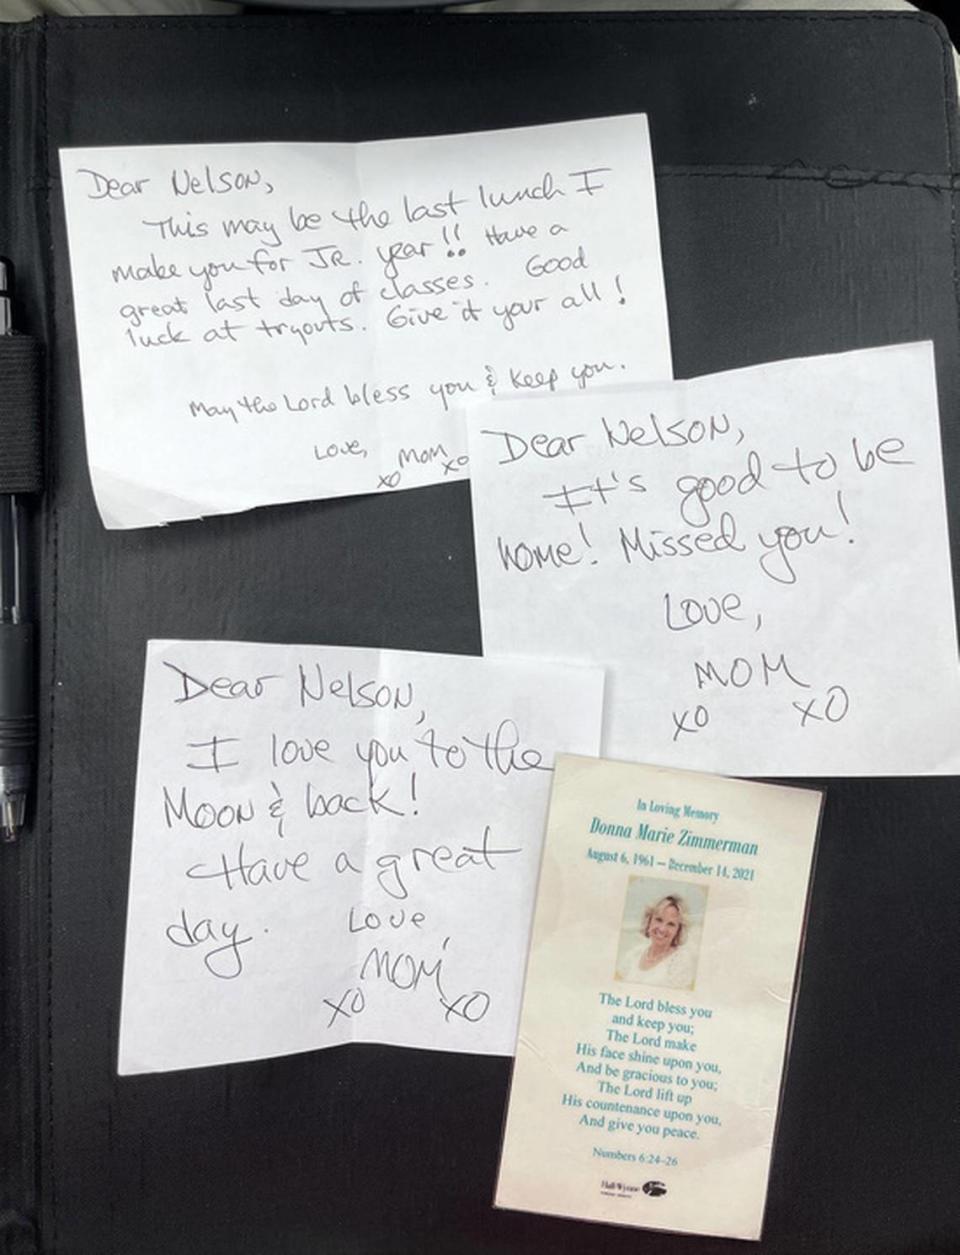 Dear Nelson,
This may be the last lunch I
make you for JR. year!! Have a
great last day of classes. Good
luck at tryouts. Give it your all!
May the Lord bless you & keep you.
Love,
MOM
xo xo
Dear Nelson,
It's good to be
home! Missed you!
Love,
MOM
xo xo
Dear Nelson,
I love you to the
Moon & back!
Have a great
day.
Love,
MOM
xo xo
In Loving Memory
Donna Marie Zimmerman
August 6, 1961 — December 14, 2021
The Lord bless you
and keep you;
The Lord make
His face shine upon you,
And be gracious to you;
The Lord lift up
His countenance upon you,
And give you peace.
Numbers 6:24-26
Hall-Wynne